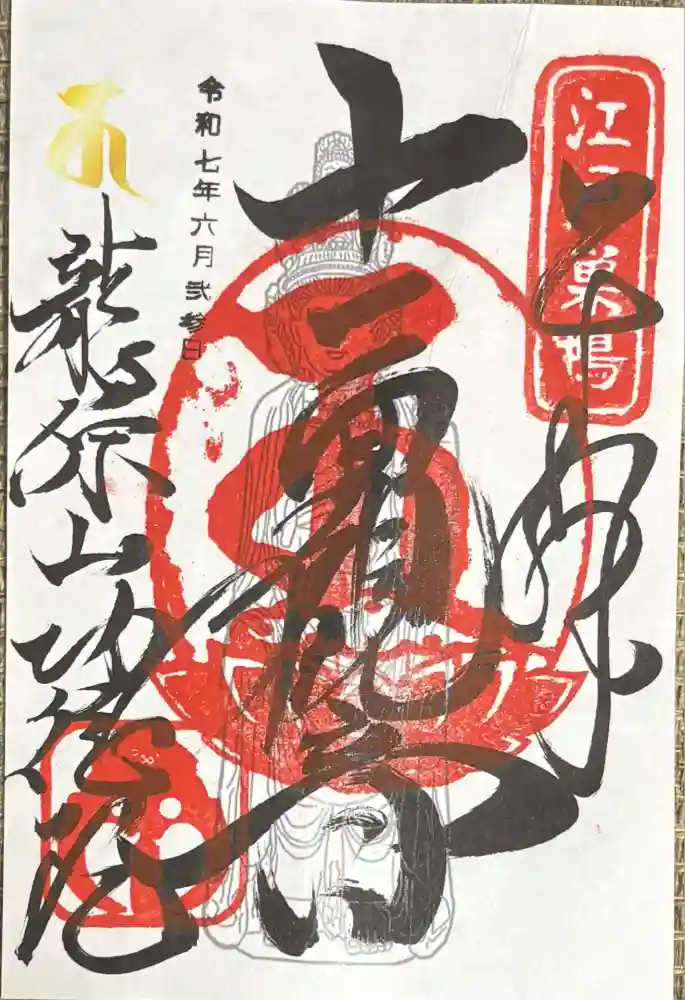 江戸巣鴨
奉拝
十一面観音
令和七年六月弐参日
功徳院